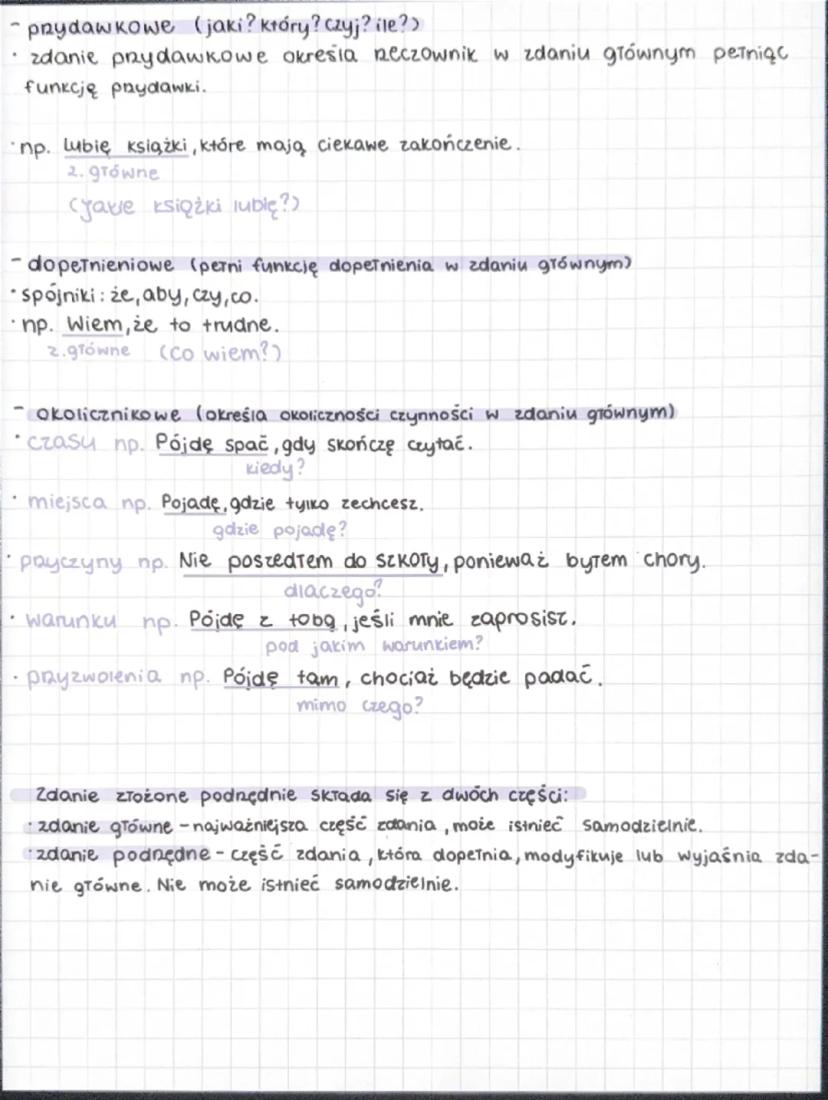 - przydawkowe (jaki? który? czyj? ile?)
· zdanie przydawkowe określa rzeczownik w zdaniu głównym pełniąc
funkcję przydawki.
· np. Lubię książki, które mają ciekawe zakończenie.
z. główne
(jakie książki lubię?)
- dopełnieniowe (pełni funkcję dopełnienia w zdaniu głównym)
· spójniki: że, aby, czy, co.
· np. Wiem, że to trudne.
z. główne (co wiem?)
- okolicznikowe (określa okoliczności czynności w zdaniu głównym)
· czasu np. Pójdę spać, gdy skończę czytać.
kiedy?
· miejsca np. Pojadę, gdzie tylko zechcesz.
gdzie pojadę?
· przyczyny np. Nie poszedłem do szkoły, ponieważ byłem chory.
dlaczego?
· warunku np. Pójdę z tobą, jeśli mnie zaprosisz.
pod jakim warunkiem?
· przyzwolenia np. Pójdę tam, chociaż będzie padać.
mimo czego?
Zdanie złożone podrzędnie składa się z dwóch części:
· zdanie główne - najważniejsza część zdania, może istnieć samodzielnie.
· zdanie podrzędne - część zdania, która dopełnia, modyfikuje lub wyjaśnia zda-
nie główne. Nie może istnieć samodzielnie.